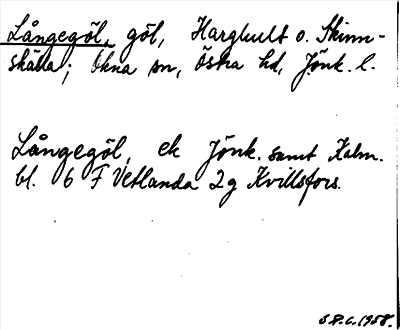 Långegöl, göl, Harghult o. Skinn-
skälla; Ökna sn, Östra hd, Jönk. l.
Långegöl, ek Jönk. samt Kalm.
bl. 6 F Vetlanda 2g Kvillsfors.
1958.